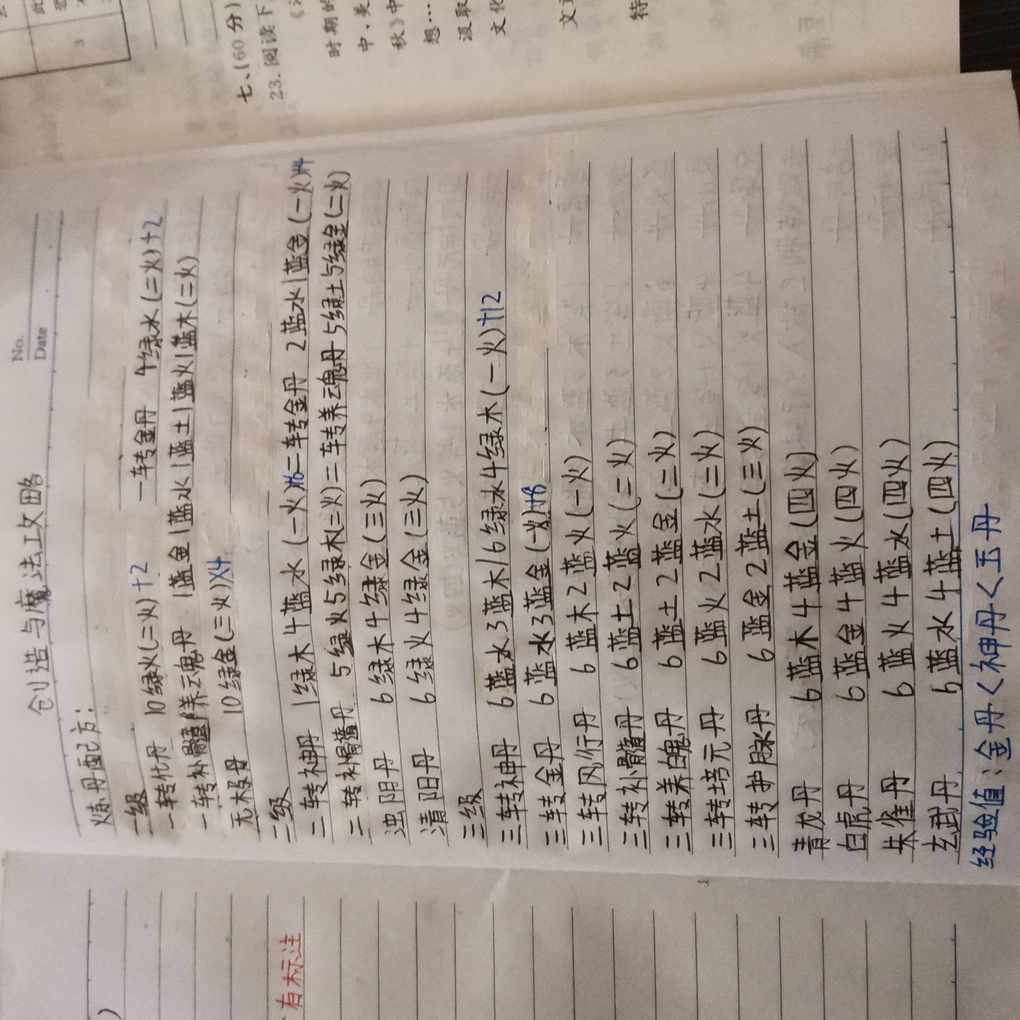 No.
Date
创造与魔法攻略
炼丹配方:
一级
一转化丹 10绿火(二火)+2 一转金丹 4绿水(二火)+2
一转补髓/养元魂丹 1蓝金1蓝水1蓝土1蓝火1蓝木(三火)
无极丹 10绿金(三火)×4
二级
二转神丹 1绿木4蓝水(一火)+6 二转金丹 2蓝水1蓝金(一火)+4
二转补髓丹 5绿火5绿木(三火)=二转养元魂丹 5绿土5绿金(三火)
浊阴丹 6绿木4绿金(三火)
清阳丹 6绿火4绿金(三火)
三级
三转神丹 6蓝水3蓝木/6绿水4绿木(一火)+12
三转金丹 6蓝水3蓝金(一火)+8
三转风行丹 6蓝木2蓝火(一火)
三转补髓丹 6蓝土2蓝火(二火)
三转养魄丹 6蓝土2蓝金(二火)
三转培元丹 6蓝火2蓝水(三火)
三转护脉丹 6蓝金2蓝土(三火)
青龙丹 6蓝木4蓝金(四火)
白虎丹 6蓝金4蓝火(四火)
朱雀丹 6蓝火4蓝水(四火)
玄武丹 6蓝水4蓝土(四火)
经验值:金丹<神丹<玉丹
有标注
七、(60分)
23. 阅读下
时期的
中,关
秋》中
想……
汲取
文化